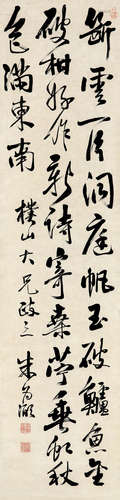 斷雲一片洞庭帆玉破鱸魚金
破柑好作新詩寄桑苧垂虹秋
色滿東南
樸山大兄政之
朱